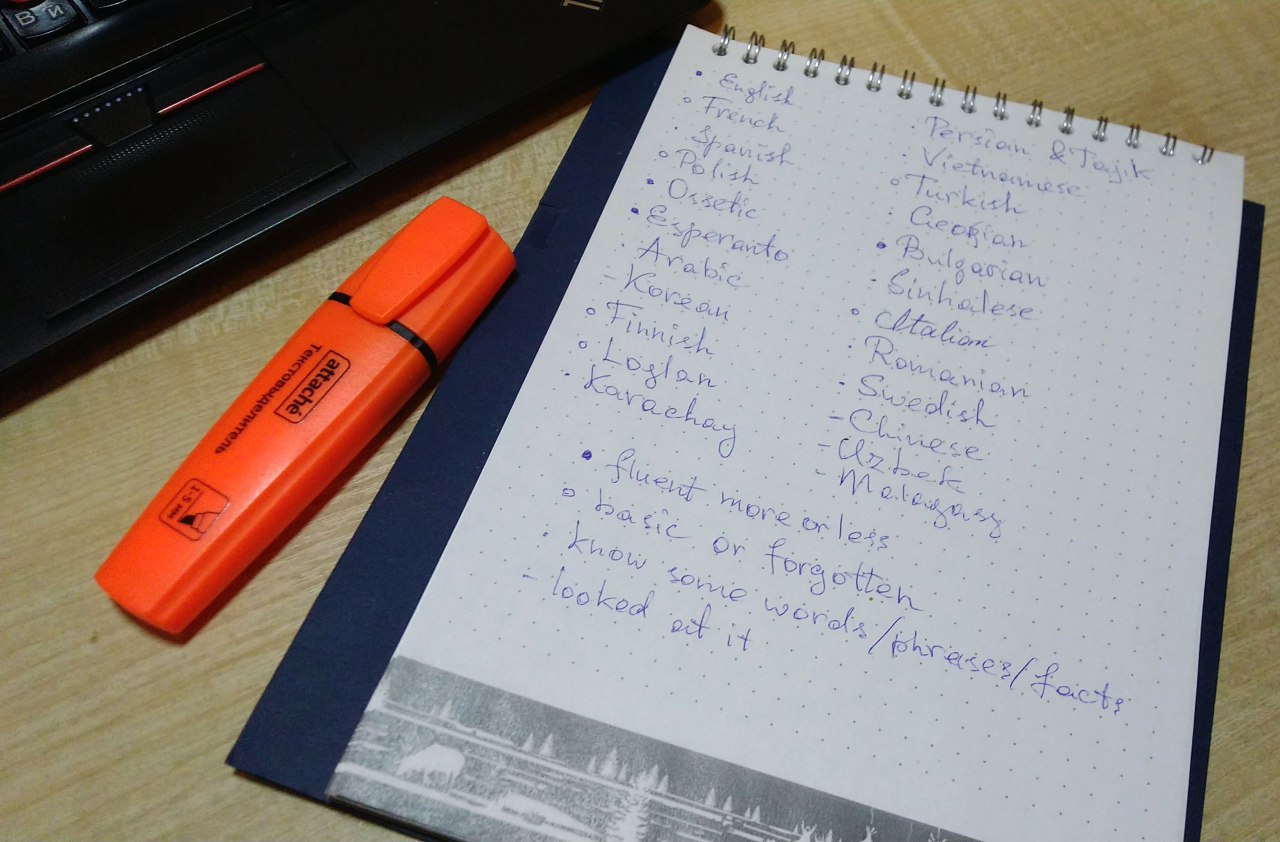 В Й
• English
∘ French
· Spanish
∘ Polish
• Ossetic
• Esperanto
· Arabic
- Korean
∘ Finnish
∘ Loglan
· Karachay
· Persian & Tajik
· Vietnamese
∘ Turkish
· Georgian
• Bulgarian
· Sinhalese
∘ Italian
· Romanian
· Swedish
- Chinese
- Uzbek
- Malagasy
• fluent more or less
∘ basic or forgotten
· know some words/phrases/facts
- looked at it
attaché
Текстовыделитель
1-5 мм